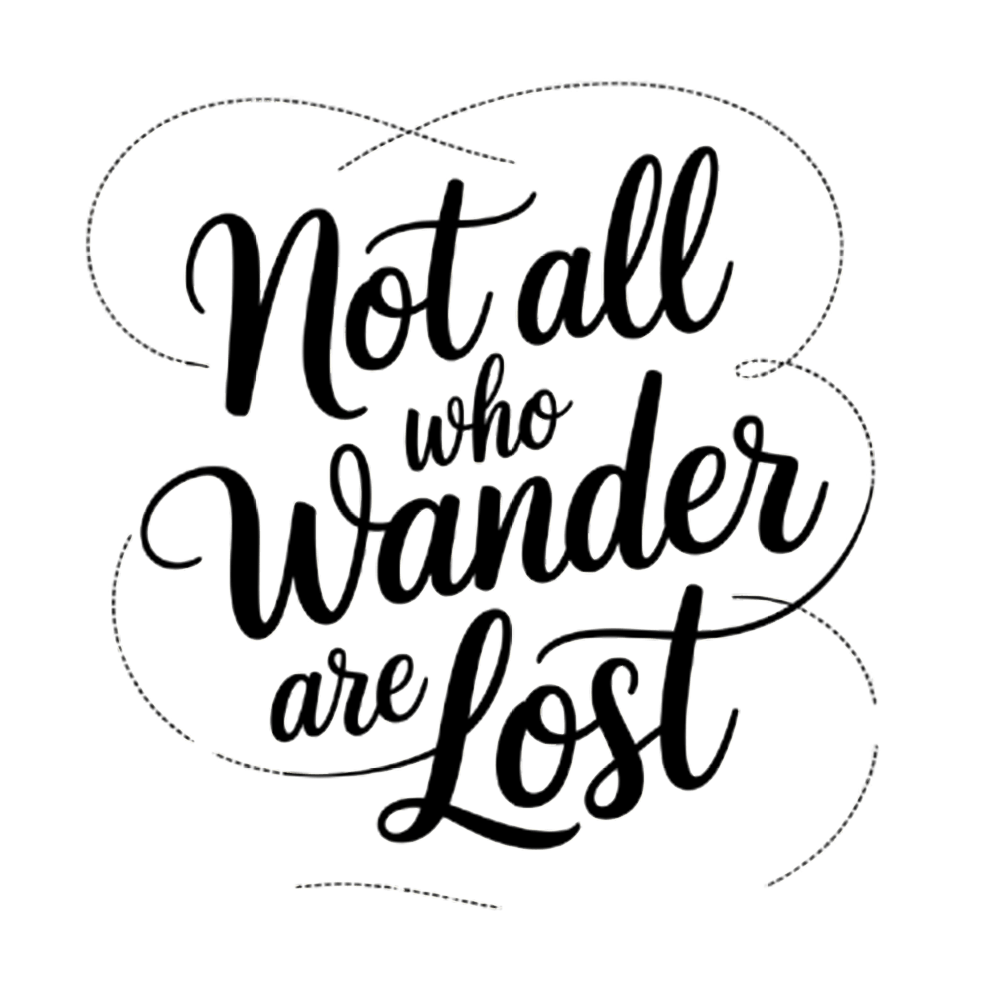 Not all
who
Wander
are Lost